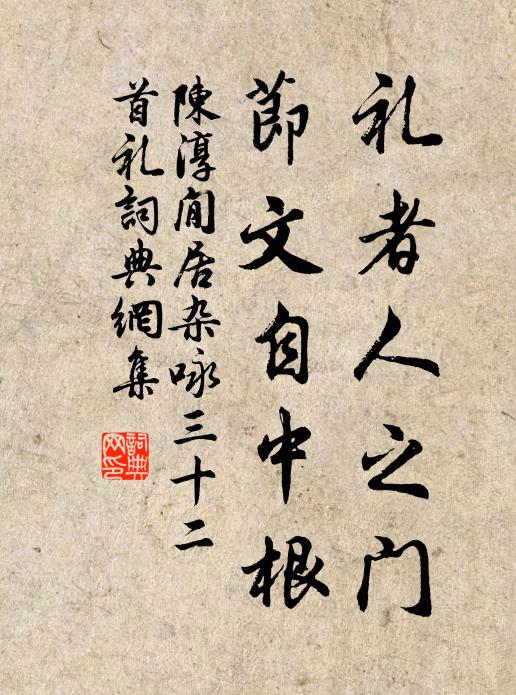 礼者人之门
莭文自中根
陳淳閒居杂咏三十二
首礼詞典網集
詞典网印